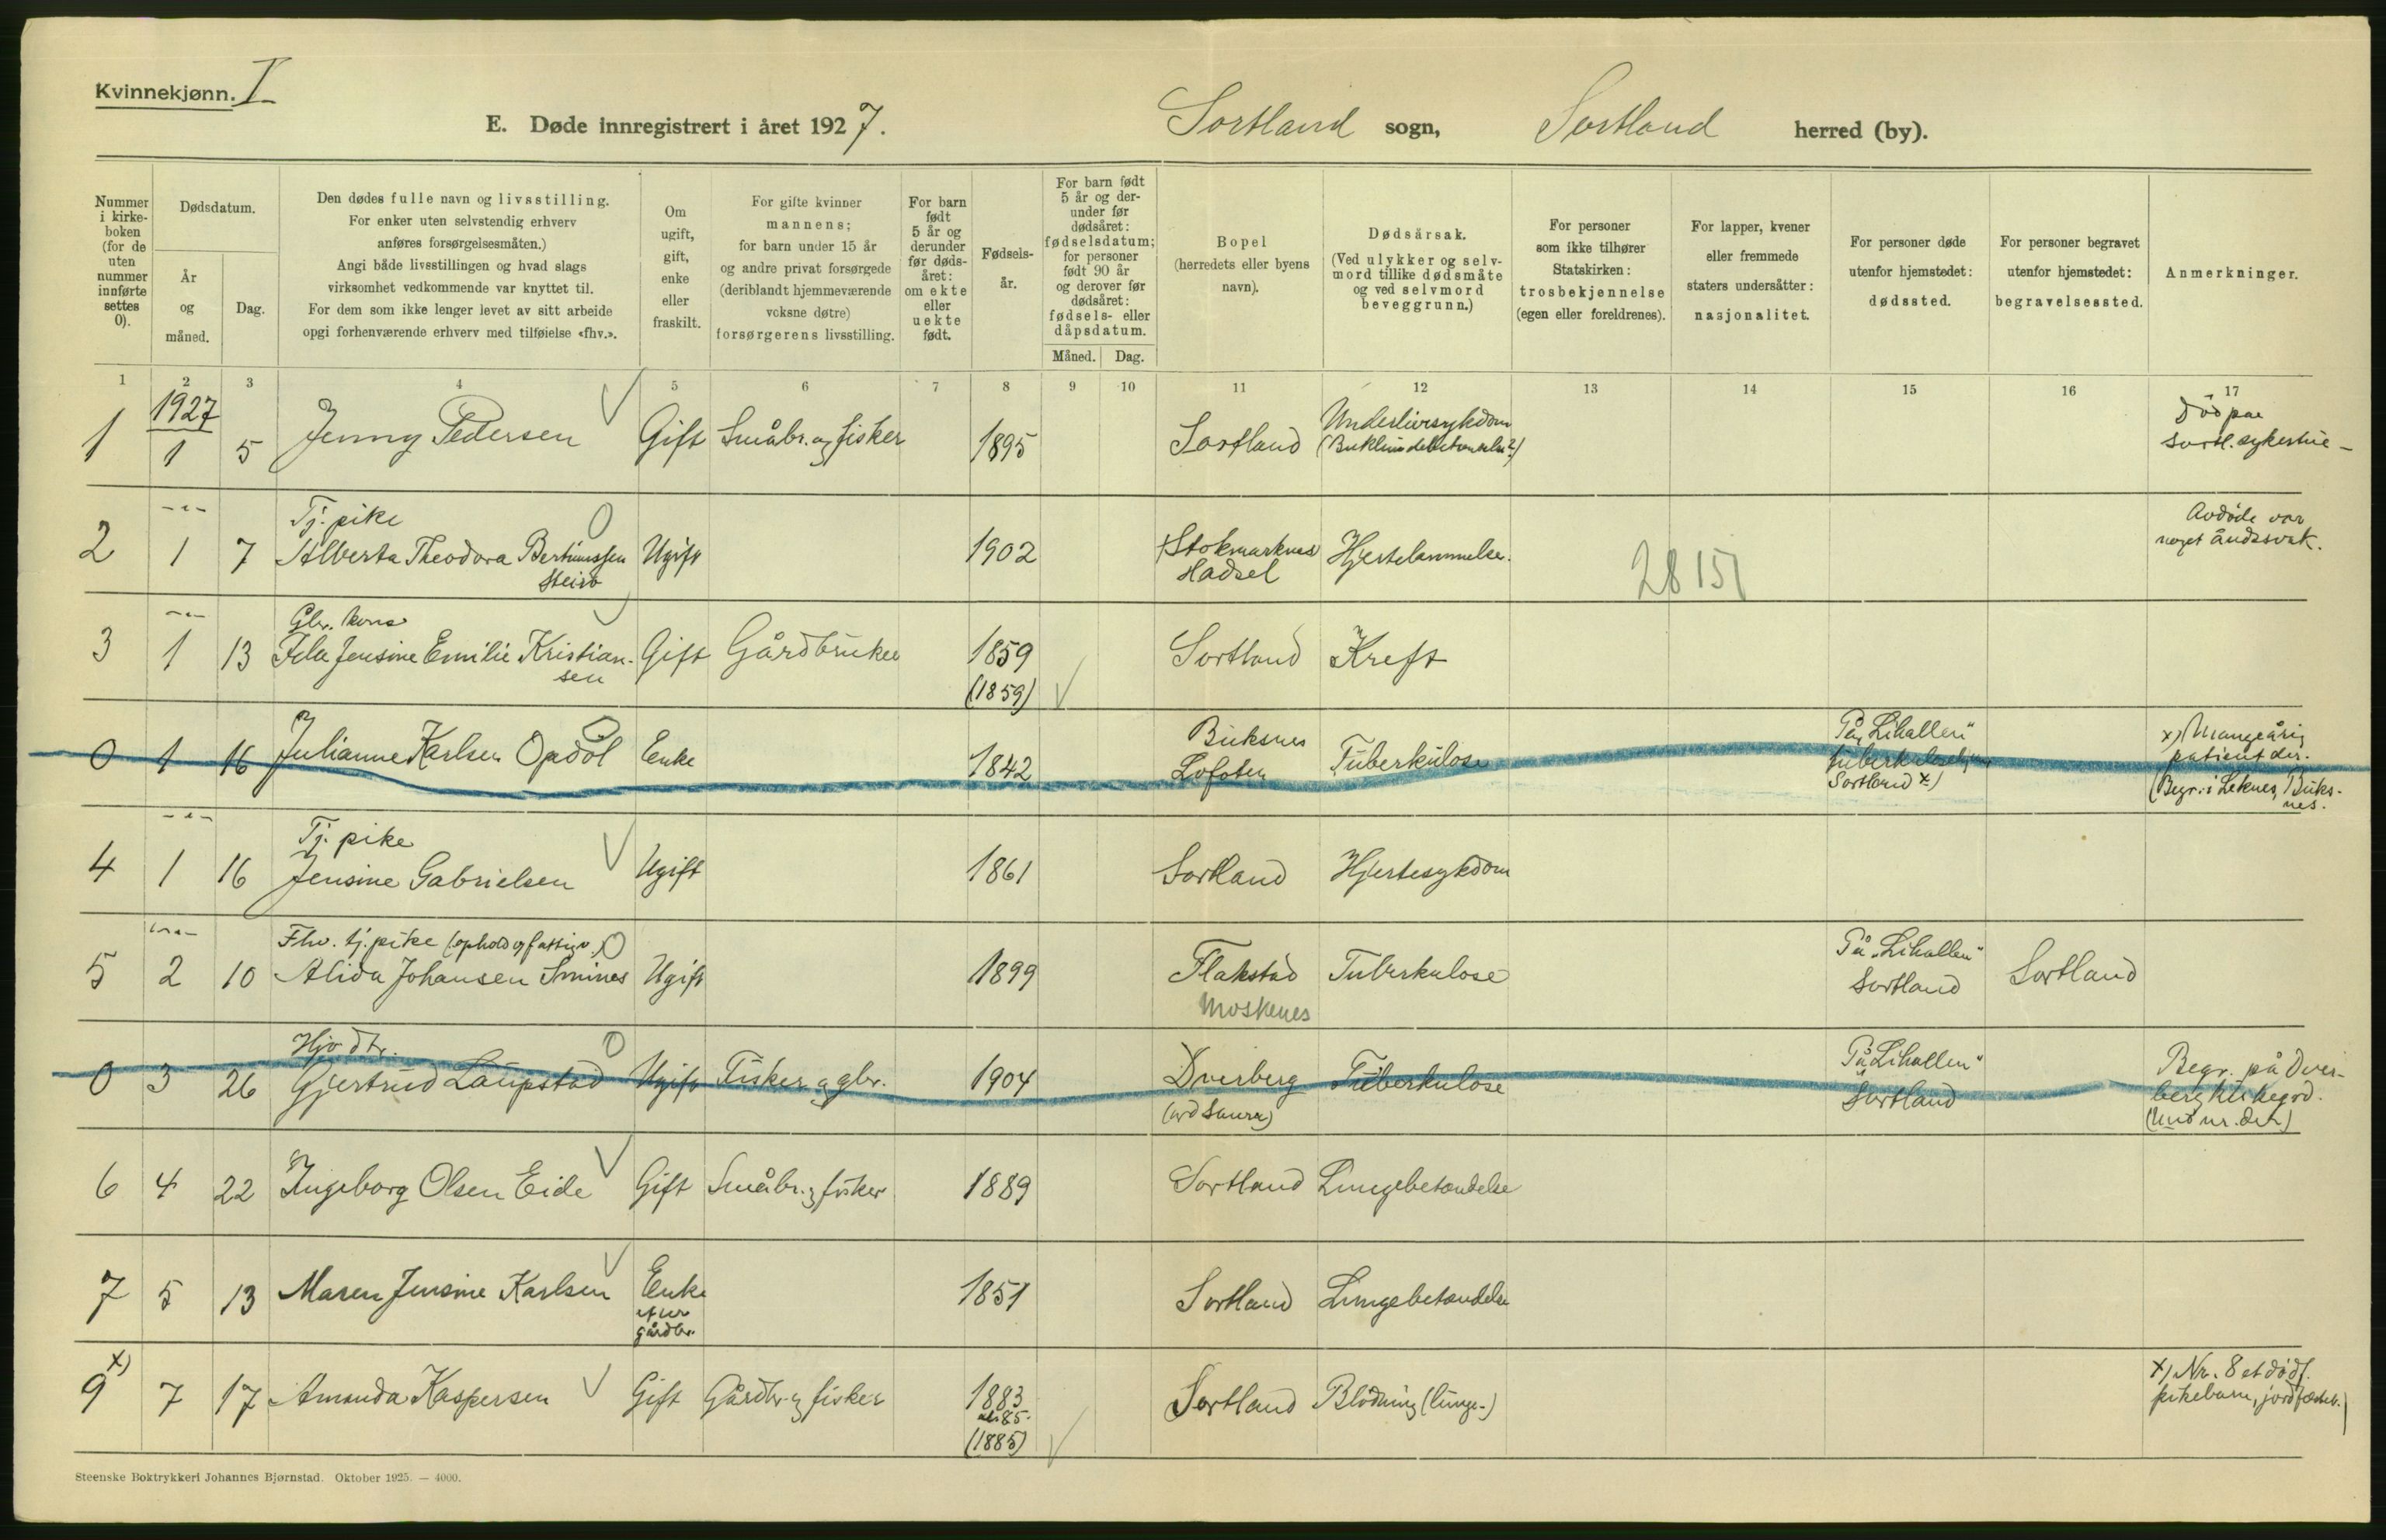 Kvinnekjønn. I
E. Døde innregistrert i året 1927. Sortland sogn, Sortland herred (by).
Nummer
i kirke-
boken
(for de
uten
nummer
innførte
settes
0).
Dødsdatum.
År
og
måned.
Dag.
Den dødes fulle navn og livsstilling.
For enker uten selvstendig erhverv
anføres forsørgelsesmåten.)
Angi både livsstillingen og hvad slags
virksomhet vedkommende var knyttet til.
For dem som ikke lenger levet av sitt arbeide
opgi forhenværende erhverv med tilføielse «fhv.».
Om
ugift,
gift,
enke
eller
fraskilt.
For gifte kvinner
mannens;
for barn under 15 år
og andre privat forsørgede
(deriblandt hjemmeværende
voksne døtre)
forsørgerens livsstilling.
For barn
født
5 år og
derunder
før døds-
året:
om ekte
eller
uekte
født.
Fødsels-
år.
For barn født
5 år og der-
under før
dødsåret:
fødselsdatum;
for personer
født 90 år
og derover før
dødsåret:
fødsels- eller
dåpsdatum.
Måned. Dag.
Bopel
(herredets eller byens
navn).
Dødsårsak.
(Ved ulykker og selv-
mord tillike dødsmåte
og ved selvmord
beveggrunn.)
For personer
som ikke tilhører
Statskirken:
trosbekjennelse
(egen eller foreldrenes).
For lapper, kvener
eller fremmede
staters undersåtter:
nasjonalitet.
For personer døde
utenfor hjemstedet:
dødssted.
For personer begravet
utenfor hjemstedet:
begravelsessted.
Anmerkninger.
1 2 3 4 5 6 7 8 9 10 11 12 13 14 15 16 17
1927
1 1 5 Jenny Pedersen Gift Småbr. og fisker 1895 Sortland Underlivssykdom
Død paa
sortl. sykestue -
- " -
Tj. pike
2 1 7 Alberta Theodora Bertinussen Ugift 1902 Stokmarknes Hjertelammelse.
Steiro
Hadsel
28 15
Avdöde var
noget åndssvak.
- " -
Gbr. kone
3 1 13 Jensine Emilie Kristian- Gift Gårdbruker 1859 Sortland Kreft
sen
(1859)
0 1 16 Julianne Karlsen Opdöl Enke 1842 Buksnes Tüberkülose
Lofoten
På „Lihallen"
Sortland x)
x) Mangeårig
patient der.
(Begr. i Leknes, Büks-
nes.
- " -
Tj. pike
4 1 16 Jensine Gabrielsen Ugift 1861 Sortland Hjertesykdom
- " -
Fhv. tj. pike (ophold og fattigv.)
5 2 10 Alida Johansen Ugift 1899 Flakstad Tuberkulose På „Lihallen" Sortland
Moskenes
Sortland
Hjv dtr.
0 3 26 Gjertrud Laupstad Ugift Fisker og gbr. 1904 Dverberg Tüberkulose På „Lihallen"
Sortland
Begr. på Dver-
berg kirkegrd.
(Und nr. der)
6 4 22 Ingeborg Olsen Eide Gift Småbr. og fisker 1889 Sortland Lungebetændelse
7 5 13 Maren Jensine Karlsen Enke 1851 Sortland Lungebetændelse
efter
gårdbr.
9 x) 7 17 Amanda Kaspersen Gift Gårdbr. og fisker 1883 Sortland Blödning (lunge-)
als 85.
(1885)
x) Nr. 8 et dødf.
pikebarn, jordfæstet.)
Steenske Boktrykkeri Johannes Bjørnstad. Oktober 1925. — 4000.